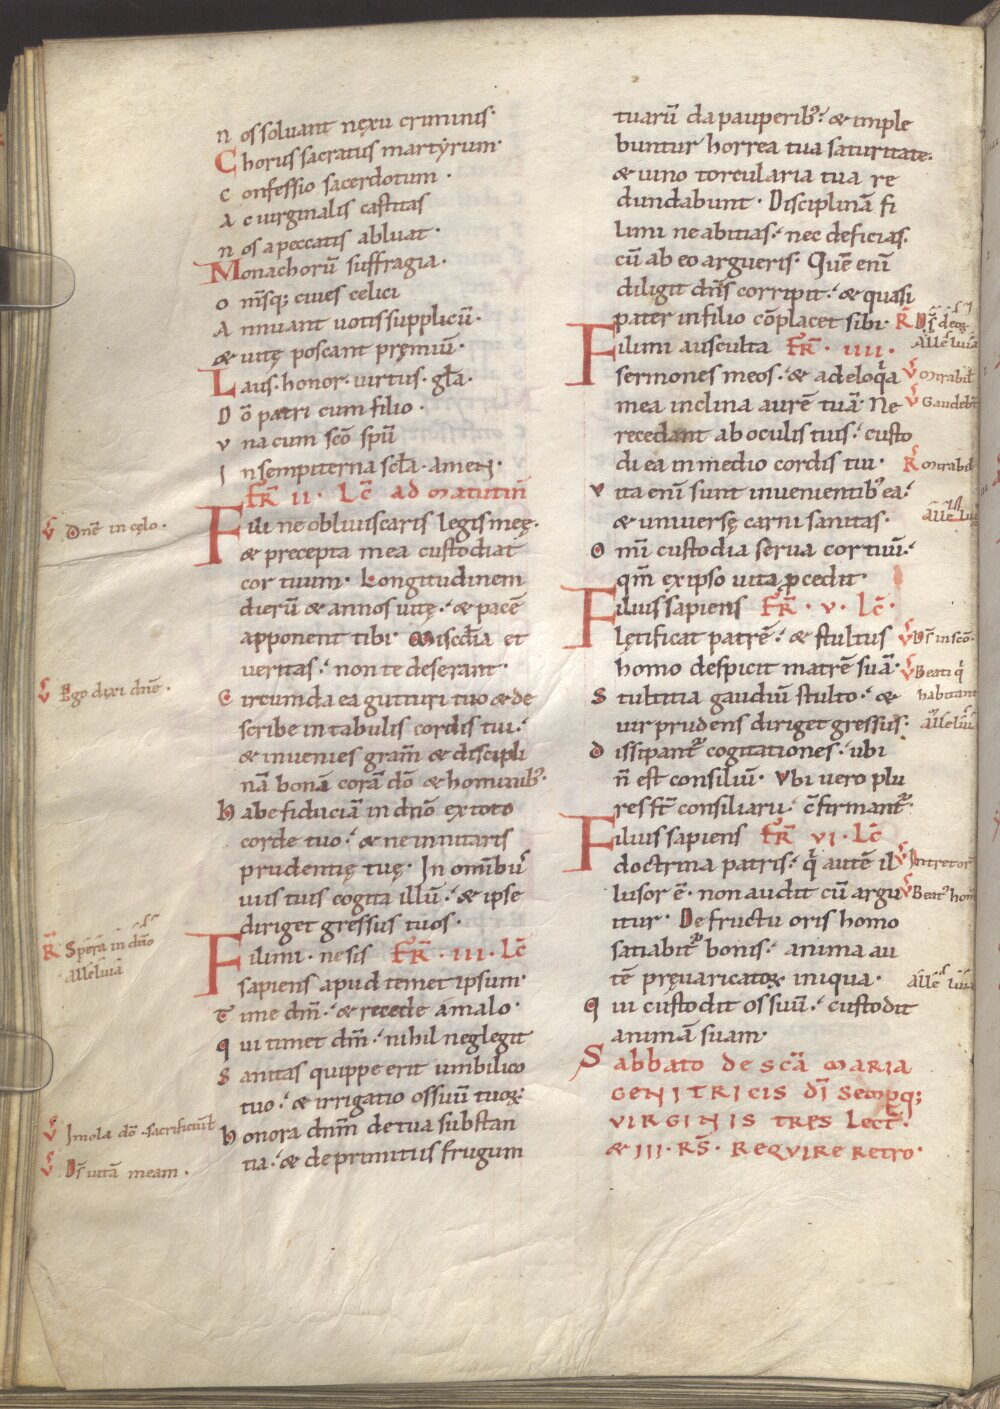 n os soluant nęxu criminis·
C horus sacratus martyrum·
c onfessio sacerdotum·
A c uirginalis castitas
n os a peccatis abluat·
M onachorū suffragia·
o mīsq; ciues celici
A nnuant uotis supplicū·
& uitę poscant pręmiū·
L aus· honor· uirtus· gła·
D ō patri cum filio·
v na cum scō spū
I n sempiterna scła· amen·
FR̄ II· Lc̄ ad matutin̄
F ili ne obliuiscaris legis meę·
& precepta mea custodiat
cor tuum· Longitudinem
dierū & annos uitę· & pacē
apponent tibi· Misc̄dia et
ueritas· non te deserant·
C ircumda ea gutturi tuo & de
scribe in tabulis cordis tui·
& inuenies gram̄ & discipli
nā bonā corā dō & hominib;·
h abe fiduciā in dnō ex toto
corde tuo· & ne innitaris
prudentię tuę· In omīb;
uiis tuis cogita illū· & ipse
diriget gressus tuos·
F ili mi· ne sis FR̄· III· Lc̄
sapiens apud temet ipsum·
T ime dm̄· & recede a malo·
q ui timet dm̄· nihil neglegit
S anitas quippe erit umbilico
tuo· & irrigatio ossuū tuoꝝ·
h onora dnm̄ de tua substan
tia· & de primitiis frugum
℣ Dn̄e in cęlo·
℣ Ego dixi dn̄e·
R̄ Spera in dnō
alleluia
℣ Imola dō· sacrificiū
℣ Ds̄ uitā meam·
tuarū da pauperib;· & imple
buntur horrea tua saturitate·
& uino torcularia tua re
dundabunt· Disciplinā fi
li mi ne abitias· nec deficias
cū ab eo argueris· Quē enī
diligit dn̄s corripit· & quasi
pater in filio cōplacet sibi·
F ili mi ausculta FR̄· IIII·
sermones meos· & ad eloq̄a
mea inclina aurē tuā· Ne
recedant ab oculis tuis· custo
di ea in medio cordis tui·
v ita enī sunt inuenientib; ea·
& uniuersę carni sanitas·
O mī custodia serua cor tuū·
qm̄ ex ipso uita ꝓcedit·
F ilius sapiens FR̄· V· Lc̄·
lętificat patrē· & stultus
homo despicit matrē suā·
S tultitia gaudiū stulto· &
uir prudens diriget gressus·
d issipant̄ cogitationes· ubi
n̄ est consiliū· Vbi uero plu
res s̄t consiliarii· c̄firmant̄·
F ilius sapiens FR̄ VI· Lc̄
doctrina patris· q̄ autē il
lusor ē· non audit cū argu
itur· De fructu oris homo
satiabit̄ bonis· anima au
tē pręuaricatoꝝ· iniqua·
q ui custodit os suū· custodit
animā suam·
S abbato de scā maria
GENITRICIS dī semꝑq;
VIRGINIS TRES Lect̄·
& III· Rs̄· REQVIRE RETRO·
alleluia
℣ Mirabil
℣ Gaudebt̄
R̄ Mirabil
℣ Ds̄ in scō·
℣ Beati q̄
habitant
alleluia
℣ Intret or
℣ Beat; hom